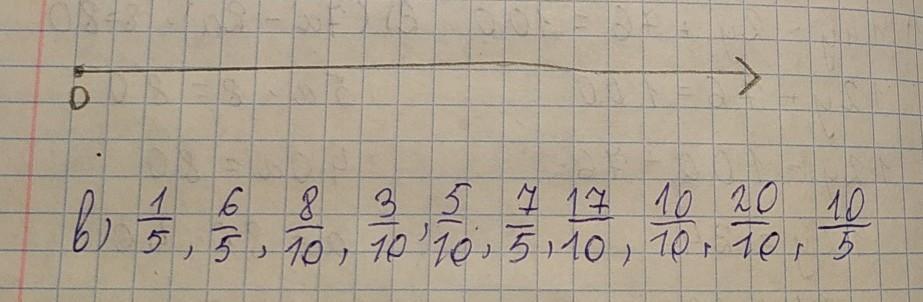 0
в) 1/5, 6/5, 8/10, 3/10, 5/10, 7/5, 17/10, 10/10, 20/10, 10/5